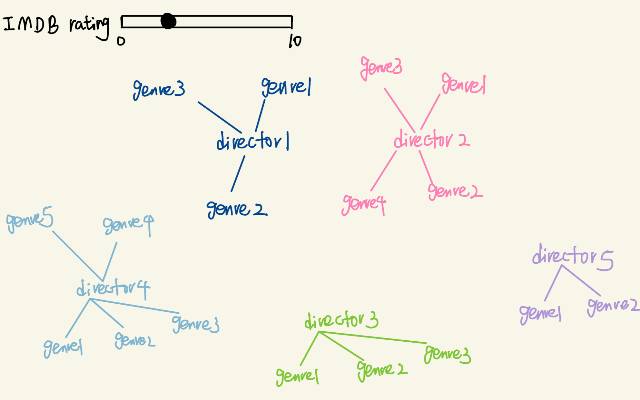 IMDB rating
0 10
genre3 genre1
director1
genre2
genre3 genre1
director 2
genre4 genre2
genre5 genre4
director4
genre1 genre2 genre3
director 3
genre1 genre 2 genre3
director 5
genre1 genre2